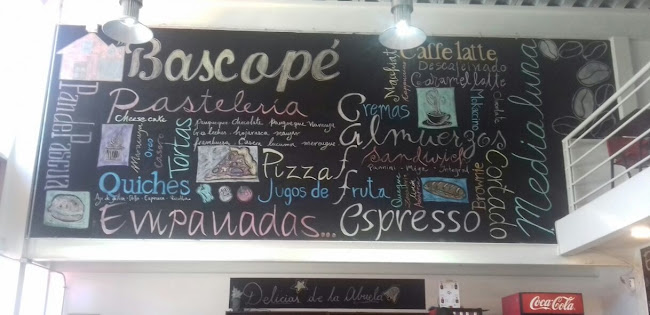 Bascopé
Pastelería
Cheese cake
Maracuyá
Oreo
Casero
Tortas
Panqueque chocolate Panqueque naranja
Tres leches hojarasca mango
frambuesa lucuma merengue
Quiches
Pizza
Jugos de fruta
Empanadas...
Pan de Pascua
Cremas
almuerzos
Sandwich
Espresso
Caffe latte
Descafeinado
Caramel latte
Machiato
Mokacino
Brownie
Cortado
Media luna
Delicias de la Abuela
Coca-Cola